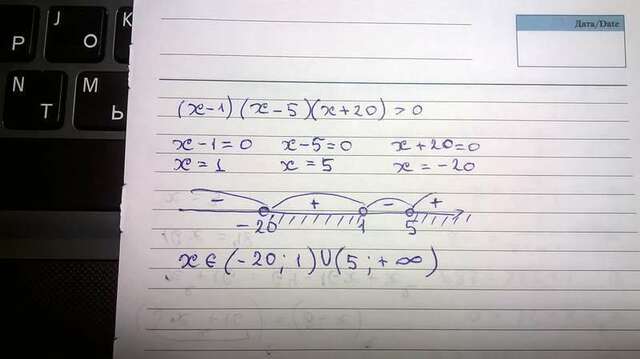 J
К
Р
О
N
M
Т
Ь
Дата/Date
(x-1)(x-5)(x+20)>0
x-1=0 x-5=0 x+20=0
x=1 x=5 x=-20
- + - +
-20 1 5
x∈(-20;1)∪(5;+∞)